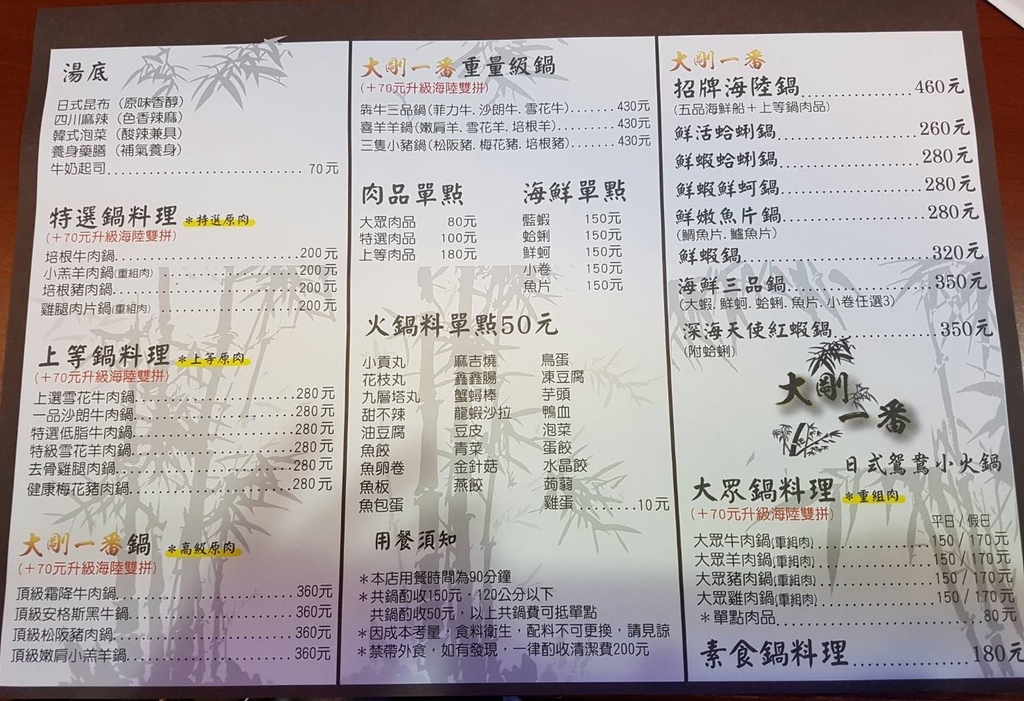 湯底
日式昆布（原味香醇）
四川麻辣（色香辣麻）
韓式泡菜（酸辣兼具）
養身藥膳（補氣養身）
牛奶起司 70元
特選鍋料理 ＊特選原肉
(＋70元升級海陸雙拼)
培根牛肉鍋 200元
小羔羊肉鍋(重組肉) 200元
培根豬肉鍋 200元
雞腿肉片鍋(重組肉) 200元
上等鍋料理 ＊上等原肉
(＋70元升級海陸雙拼)
上選雪花牛肉鍋 280元
一品沙朗牛肉鍋 280元
特選低脂牛肉鍋 280元
特級雪花羊肉鍋 280元
去骨雞腿肉鍋 280元
健康梅花豬肉鍋 280元
大剛一番鍋 ＊高級原肉
(＋70元升級海陸雙拼)
頂級霜降牛肉鍋 360元
頂級安格斯黑牛鍋 360元
頂級松阪豬肉鍋 360元
頂級嫩肩小羔羊鍋 360元
大剛一番重量級鍋
(＋70元升級海陸雙拼)
犇牛三品鍋(菲力牛.沙朗牛.雪花牛) 430元
喜羊羊鍋(嫩肩羊.雪花羊.培根羊) 430元
三隻小豬鍋(松阪豬.梅花豬.培根豬) 430元
肉品單點
大眾肉品 80元
特選肉品 100元
上等肉品 180元
海鮮單點
藍蝦 150元
蛤蜊 150元
鮮蚵 150元
小卷 150元
魚片 150元
火鍋料單點50元
小貢丸 麻吉燒 鳥蛋
花枝丸 鑫鑫腸 凍豆腐
九層塔丸 蟹蟳棒 芋頭
甜不辣 龍蝦沙拉 鴨血
油豆腐 豆皮 泡菜
魚餃 青菜 蛋餃
魚卵卷 金針菇 水晶餃
魚板 燕餃 蒟蒻
魚包蛋 雞蛋 10元
用餐須知
＊本店用餐時間為90分鐘
＊共鍋酌收150元，120公分以下
共鍋酌收50元，以上共鍋費可抵單點
＊因成本考量，食料衛生，配料不可更換，請見諒
＊禁帶外食，如有發現，一律酌收清潔費200元
大剛一番
招牌海陸鍋 460元
(五品海鮮船＋上等鍋肉品)
鮮活蛤蜊鍋 260元
鮮蝦蛤蜊鍋 280元
鮮蝦鮮蚵鍋 280元
鮮嫩魚片鍋 280元
(鯛魚片.鱸魚片)
鮮蝦鍋 320元
海鮮三品鍋 350元
(大蝦.鮮蚵.蛤蜊.魚片.小卷任選3)
深海天使紅蝦鍋 350元
(附蛤蜊)
大剛
一番
日式鴛鴦小火鍋
大眾鍋料理 ＊重組肉
(＋70元升級海陸雙拼)
平日/假日
大眾牛肉鍋(重組肉) 150/170元
大眾羊肉鍋(重組肉) 150/170元
大眾豬肉鍋(重組肉) 150/170元
大眾雞肉鍋(重組肉) 150/170元
＊單點肉品 80元
素食鍋料理 180元